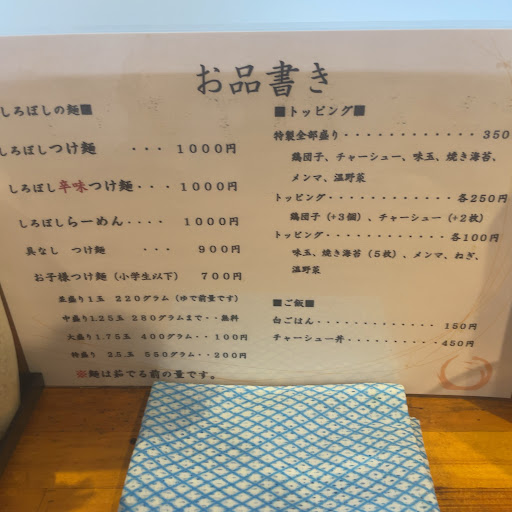 お品書き
しろぼしの麺■
しろぼしつけ麺 ・・・ 1000円
しろぼし辛味つけ麺・・・ 1000円
しろぼしらーめん・・・・ 1000円
具なし つけ麺 ・・・ 900円
お子様つけ麺（小学生以下） 700円
並盛り1玉 220グラム（ゆで前量です）
中盛り1.25玉 280グラムまで・・無料
大盛り1.75玉 400グラム・・100円
特盛り 2.5玉 550グラム・・200円
※麺は茹でる前の量です。
■トッピング■
特製全部盛り・・・・・・・・・・・・350
鶏団子、チャーシュー、味玉、焼き海苔、
メンマ、温野菜
トッピング・・・・・・・・・・・・各250円
鶏団子（+3個）、チャーシュー（+2枚）
トッピング・・・・・・・・・・・・各100円
味玉、焼き海苔（5枚）、メンマ、ねぎ、
温野菜
■ご飯■
白ごはん・・・・・・・・・・・・・ 150円
チャーシュー丼・・・・・・・・・・・450円